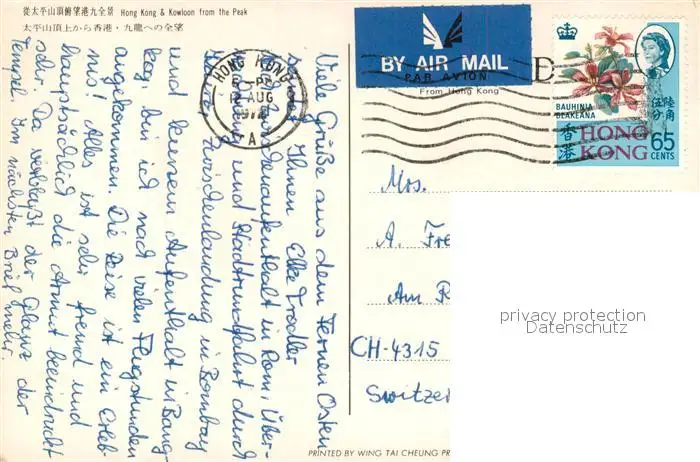 從太平山頂俯望港九全景 Hong Kong & Kowloon from the Peak
太平山頂上から香港・九龍への全望
BY AIR MAIL
PAR AVION
From Hong Kong
HONG KONG
12 AUG
A
BAUHINIA
BLAKEANA
香港
伍分
陸角
HONG
KONG
65
CENTS
Viele Grüße aus dem Fernen Osten
Ihnen Elke
in Rom, Über-
und Stadtrundfahrt durch
Zwischenlandung in Bombay
und kurzem Aufenthalt in Bang-
kog, bin ich nach vielen Flugstunden
angekommen. Die Reise ist ein Erleb-
nis! Alles ist sehr fremd und
hauptsächlich die Armut beeindruckt
sehr. Da verblaßt der Glanz der
Tempel. Im nächsten Brief mehr.
Mrs.
A. Fre
Am R
CH-4315
Switzer
privacy protection
Datenschutz
PRINTED BY WING TAI CHEUNG PR